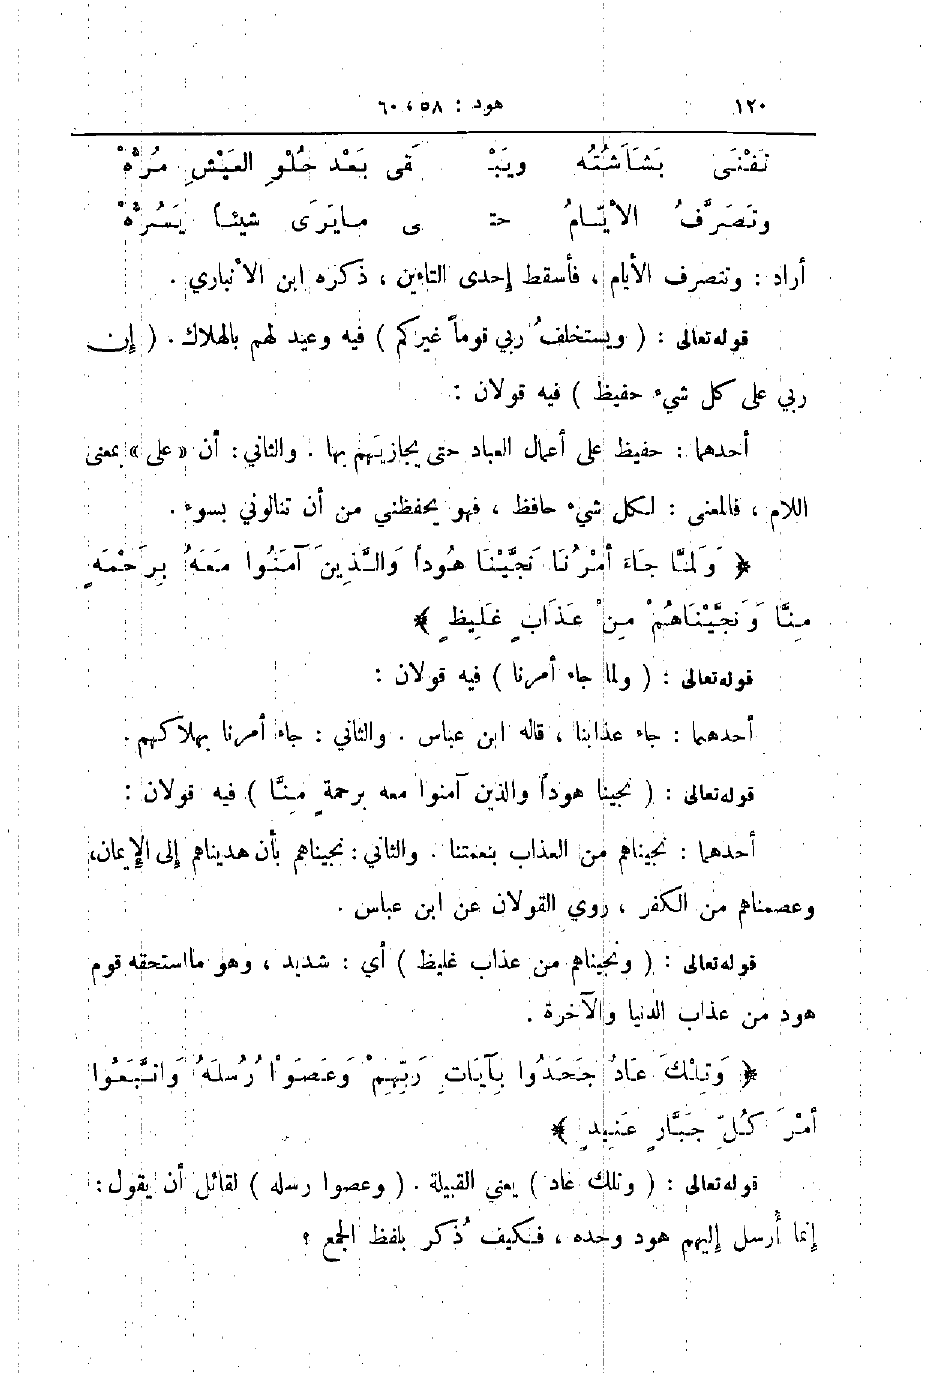 ١٢٠ هود : ٥٨ ، ٦٠
تَفْنَى بَشَاشَتُه ويَبْـ ـقَى بَعْدَ حُلْوِ العَيْشِ مُرُّهْ
وتَصَرَّفُ الأيّامُ حتـ ـى مايَرَى شيئاً يَسُرُّهْ
أراد : وتتصرف الأيام ، فأسقط إحدى التاءين ، ذكره ابن الأنباري .
قوله تعالى : ( ويستخلفُ ربي قوماً غيركم ) فيه وعيد لهم بالهلاك . ( إن
ربي على كل شيء حفيظ ) فيه قولان :
أحدهما : حفيظ على أعمال العباد حتى يجازيَهم بها . والثاني : أن « على » بمعنى
اللام ، فالمعنى : لكل شيء حافظ ، فهو يحفظني من أن تنالوني بسوء .
﴿ وَلَمَّا جَاءَ أَمْرُنَا نَجَّيْنَا هُوداً وَالَّذِينَ آمَنُوا مَعَهُ بِرَحْمَةٍ
مِنَّا وَنَجَّيْنَاهُمْ مِنْ عَذَابٍ غَلِيظٍ ﴾
قوله تعالى : ( ولما جاء أمرنا ) فيه قولان :
أحدهما : جاء عذابنا ، قاله ابن عباس . والثاني : جاء أمرنا بهلاكهم .
قوله تعالى : ( نجينا هوداً والذين آمنوا معه برحمةٍ مِنَّا ) فيه قولان :
أحدهما : نجيناهم من العذاب بنعمتنا . والثاني : نجيناهم بأن هديناهم إلى الإيمان،
وعصمناهم من الكفر ، روي القولان عن ابن عباس .
قوله تعالى : ( ونجيناهم من عذاب غليظ ) أي : شديد ، وهو مااستحقه قوم
هود من عذاب الدنيا والآخرة .
﴿ وَتِلْكَ عَادٌ جَحَدُوا بِآيَاتِ رَبِّهِمْ وَعَصَوْا رُسُلَهُ وَاتَّبَعُوا
أَمْرَ كُلِّ جَبَّارٍ عَنِيدٍ ﴾
قوله تعالى : ( وتلك عاد ) يعني القبيلة . ( وعصوا رسله ) لقائل أن يقول :
إنما أُرسل إليهم هود وحده ، فكيف ذُكر بلفظ الجمع ؟